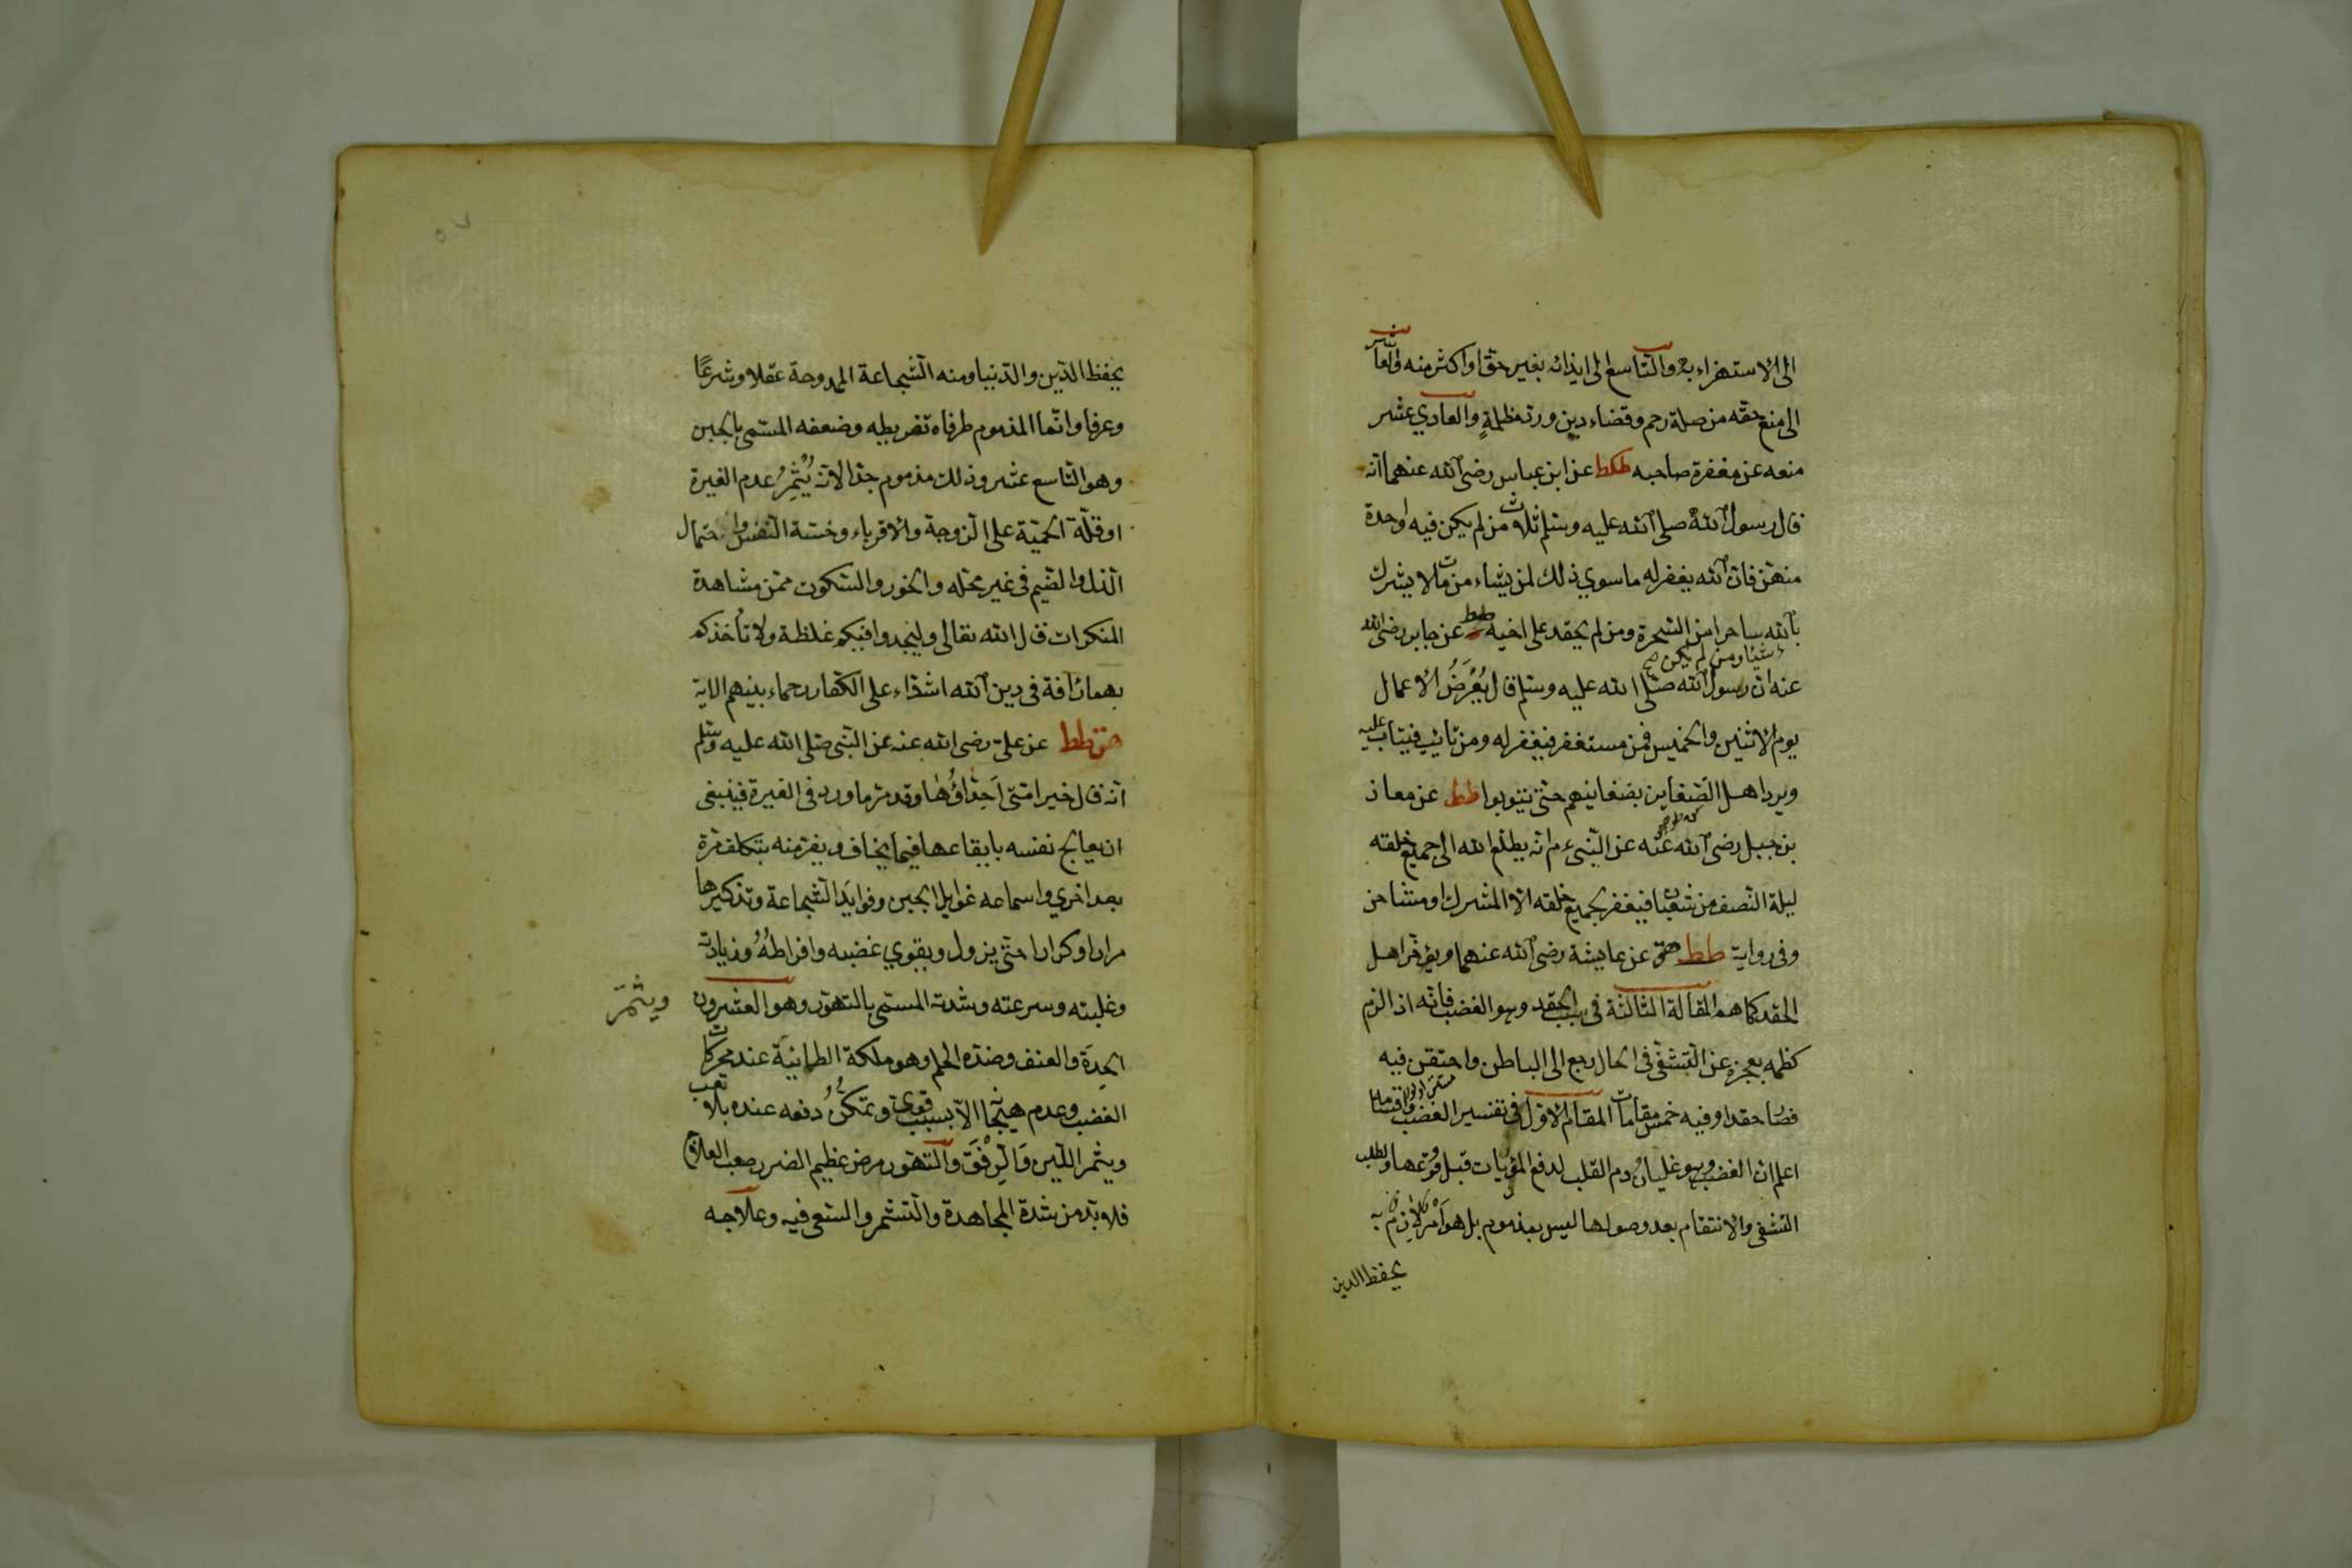 الى الاستهزاء به والتاسع الى ايذائه بغير حق او اكثر منه والعاشر
الى منع حقه من صلة رحم وقضاء دين ورد مظلمةٍ والحادي عشر
منعه عن مغفرة صاحبه طكط عن ابن عباس رضى الله عنهما انه
قال رسول الله صلى الله عليه وسلم ثلاث من لم يكن فيه واحدة
منهن فان الله يغفر له ما سوي ذلك لمن يشاء من مات لا يشرك
بالله شيئا ومن لم يكن صح ساحرا من السحرة ومن لم يحقد على اخيه ططط عن جابر رضى الله
عنه ان رسول الله صلى الله عليه وسلم قال يُعْرَضُ الاعمال
يوم الاثنين والخميس فمن مستغفر فيغفر له ومن تائب فيتاب عليه
ويرد اهل الضغاين بضغاينهم حتى يتوبوا طط عن معاذ
بن جبل رضى الله عنه عن النبى عم انه يطلع الله الى جميع خلقه
ليلة النصف من شعبان فيغفر لجميع خلقه الا المشرك او مشاحن
وفى رواية طط هق عن عايشة رضى الله عنهما ويؤخر اهل
الحقد كما هم المقالة الثالثة فى سبب الحقد وهو الغضب فانه اذا لزم
كظمه بعجزه عن التشفى فى الحال رجع الى الباطن واحتقن فيه
فصار حقدا وفيه خمس مقامات المقام الاول فى تفسير الغضب واقسامه
اعلم ان الغضب وهو غليان دم القلب لدفع المؤذيات قبل وقوعها ولطلب
التشفى والانتقام بعد وصولها ليس بمذموم بل هو امر لازم به
يحفظ الدين
يحفظ الدين والدنيا ومنه الشجاعة الممدوحة عقلا وشرعًا
وعرفا وانما المذموم طرفاه تفريطه وضعفه المسمى بالجبن
وهو التاسع عشر وذلك مذموم جدا لانه يُثْمِرُ عدم الغيرة
او قلة الحمية على الزوجة والاقرباء وخسة النفس واحتمال
الذل والضيم فى غير محله والخور والسكوت ممن مشاهدة
المنكرات قال الله تعالى وليجدوا فيكم غلظة ولا تأخذكم
بهما رافة فى دين الله اشداء على الكفار رحماء بينهم الاية
هق طط عن على رضى الله عنه عن النبى صلى الله عليه وسلم
انه قال خير امتى اَحِدَّاؤُهَا وقد مر ما ورد فى الغيرة فينبغى
ان يعالج نفسه بايقاعها فيما يخاف ويفر منه بتكلف مرة
بعد اخري واسماعه غوايل الجبن وفوايد الشجاعة وتذكيرها
مرارا وكرارا حتى يزول ويقوي غضبه وافراطُهُ وزيادته
وغلبته وسرعته وشدته المسمى بالتهور وهو العشرون ويثمر
الحِدَةَ والعنف وضده الحلم وهو ملكة الطمانينة عند محركات
الغضب وعدم هيجانه الا بسبب قوى وتمكنُ دفعه عنده بلا تعب
ويثمر اللين والرِفْقَ والتهور مرض عظيم الضرر صعب العلاج
فلا بد من شدة المجاهدة والتشمر والسعى فيه وعلاجه